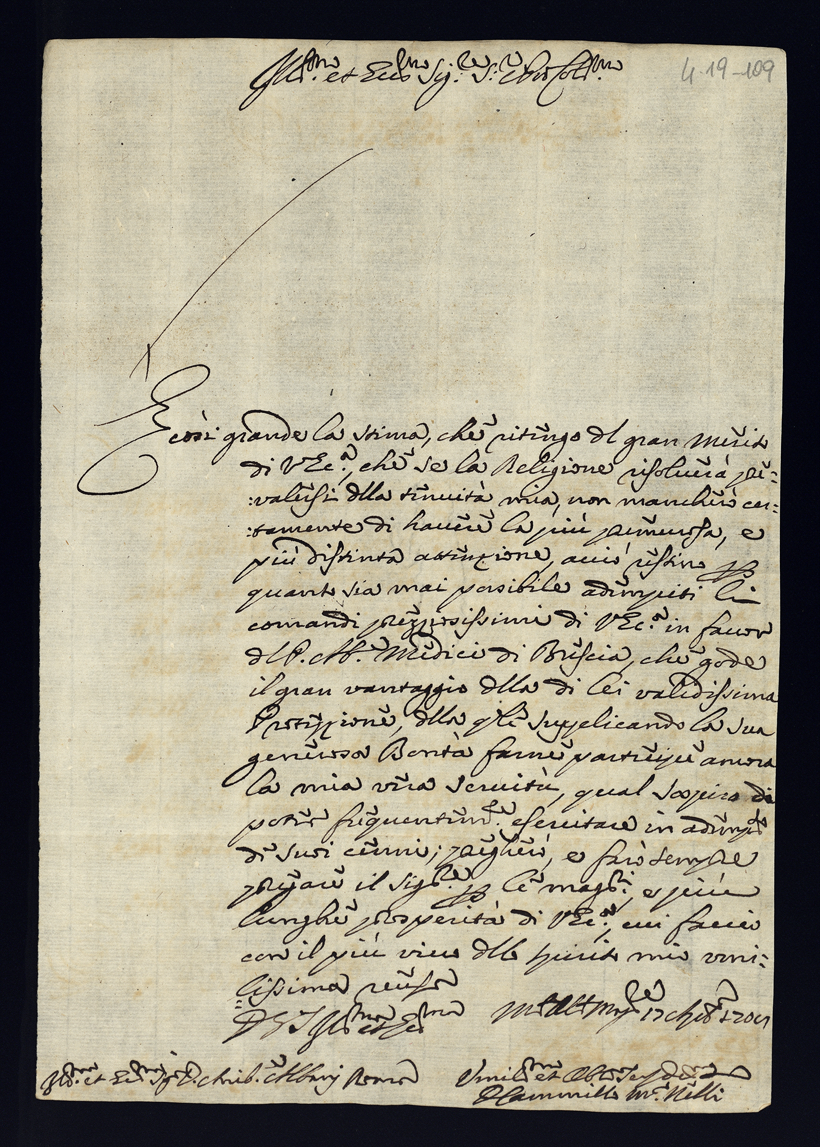 Ill.mo et Ecc.mo Sig.re S.r e P.ron Col.mo
4-19-109
E così grande la stima, che ritengo del gran merito
di V. Ecc.a, che se la Religione risoluerà pre=
:ualersi della tenuità mia, non mancherò cer=
:tamente di hauere la più premurosa, e
più distinta attenzione, acciò restino p
quanto sia mai possibile adempiti li
comandi preziosissimi di V. Ecc.a in fauor
del P. Ab.e Medici di Brescia, che gode
il gran vantaggio della di lei validissima
Protezzione, della q.le supplicando la sua
generosa Bontà farne partecipe ancora
la mia vera seruitù, qual sospiro di
poter frequentem.te esercitare in adimp.to
de suoi cenni; pregherò, e farò sempre
pregare il Sig.re p le magg.ri, e più
lunghe prosperità di V. Ecc.a, cui faccio
con il più viuo dello spirito mio vmi=
=lissima reuer.a
D V S Ill.ma et Ecc.ma M.te Oli.to Mag.re 17 1701
Ill.mo et Ecc.mo Sig.r D. Annib.e Albani Roma
Vmil.mo et Obb.mo Ser.
D Cammillo M.a Nelli